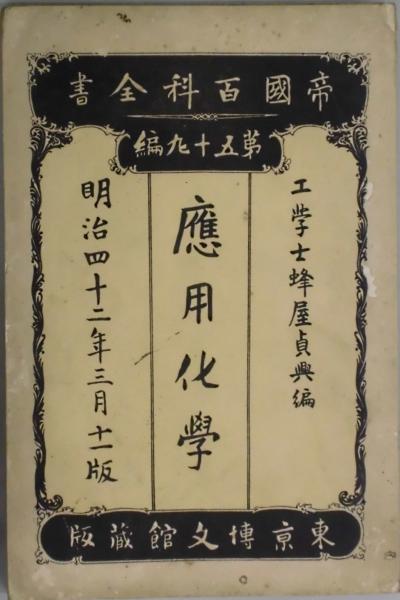 帝國百科全書
第五十九編
工学士蜂屋貞興編
應用化學
明治四十二年三月十一版
東京博文館藏版